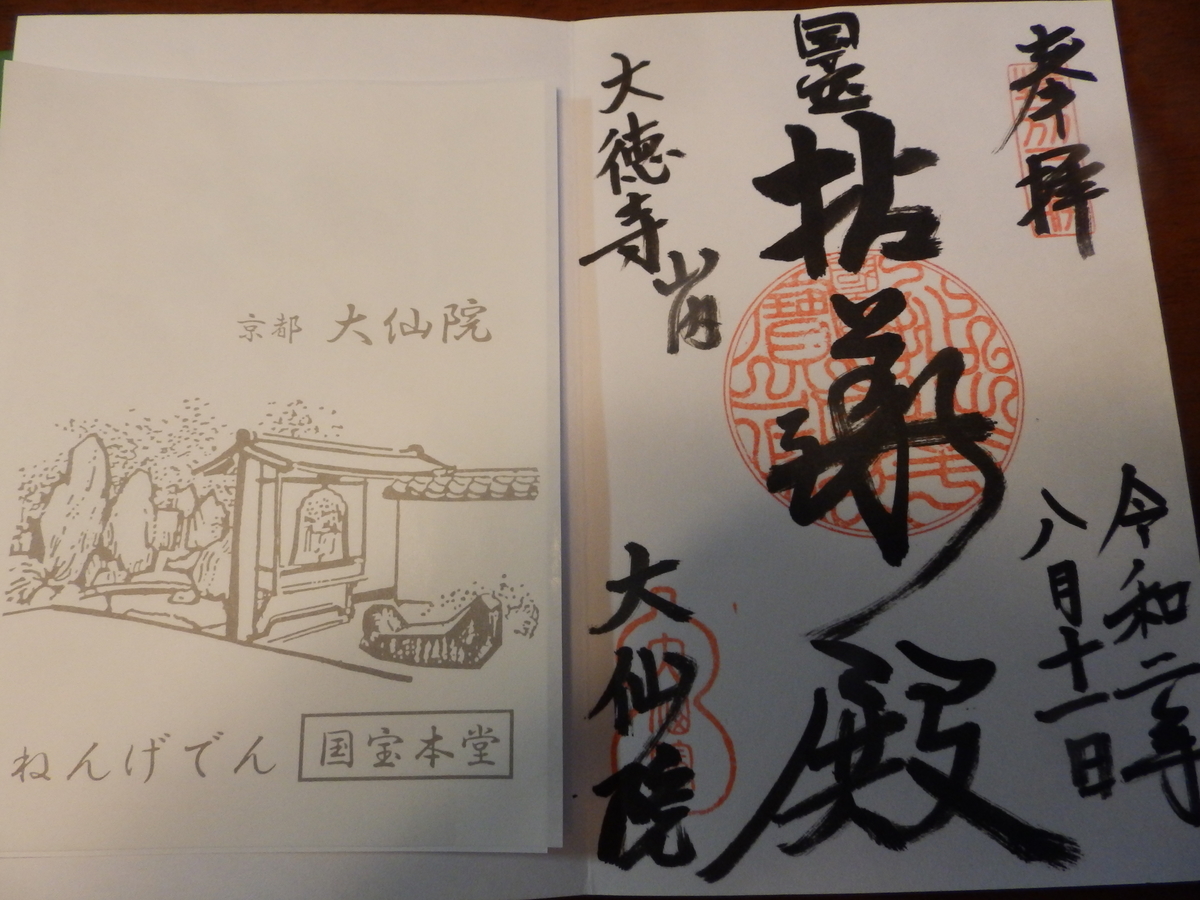 奉拝
令和二年
八月十一日
国宝
拈華殿
大徳寺山内
大仙院
京都 大仙院
ねんげでん 国宝本堂